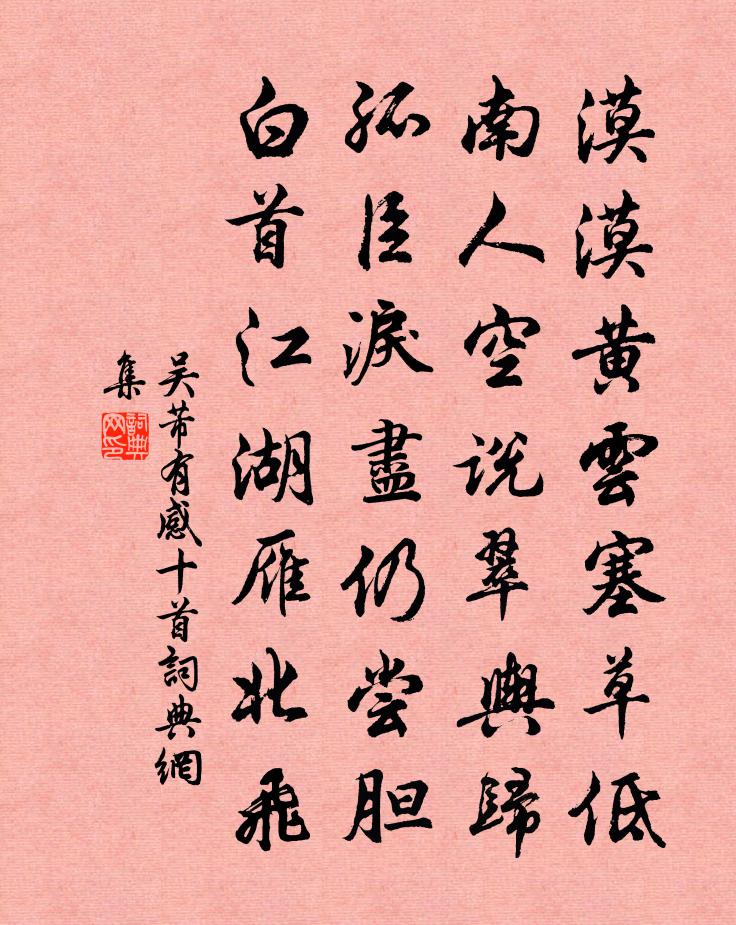 漠漠黄雲塞草低
南人空説翠輿歸
孤臣淚盡仍尝胆
白首江湖雁北飛
吴芾有感十首詞典網
集
詞典
网印